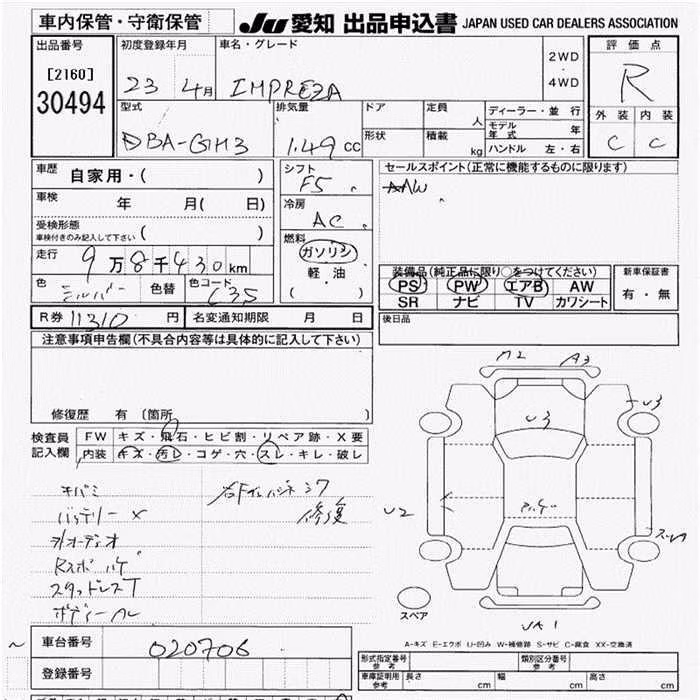 車内保管・守衛保管
JU 愛知 出品申込書 JAPAN USED CAR DEALERS ASSOCIATION
出品番号
[2160]
30494
初度登録年月
23 4月
車名・グレード
IMPREZA
2WD
・
4WD
評価点
R
外装 内装
C C
型式
DBA-GH3
排気量
1.49 CC
ドア
形状
定員
人
積載
kg
ディーラー・並行
モデル年式 年
ハンドル 左・右
車歴
自家用・( )
車検
年 月( 日)
受検形態
車検付きのみ記入して下さい ( )
走行
9万8千430km
色
シルバー
色替
色コード
C35
シフト
F5
冷房
AC
燃料
ガソリン
軽油
( )
セールスポイント(正常に機能するものに限ります)
AW
装備品(純正品に限り○をつけてください)
PS PW エアB AW
SR ナビ TV カワシート
新車保証書
有・無
R券 11310 円
名変通知期限 月 日
後日品
注意事項申告欄(不具合内容等は具体的に記入して下さい)
修復歴 有 〔箇所 〕
検査員
記入欄
FW キズ・飛石・ヒビ割・リペア跡・X要
内装 キズ・汚レ・コゲ・穴・スレ・キレ・破レ
キバミ
バッテリーX
ヲ/オーディオ
スタッドレスT
修復
M2 A3
U3
U3
U2
スペア
A-キズ E-エクボ U-凹み W-補修跡 S-サビ C-腐食 XX-交換済
車台番号
020706
登録番号
形式指定番号
参考
類別区分番号
参考
車庫証明用
参考
長さ cm
幅 cm
高さ cm